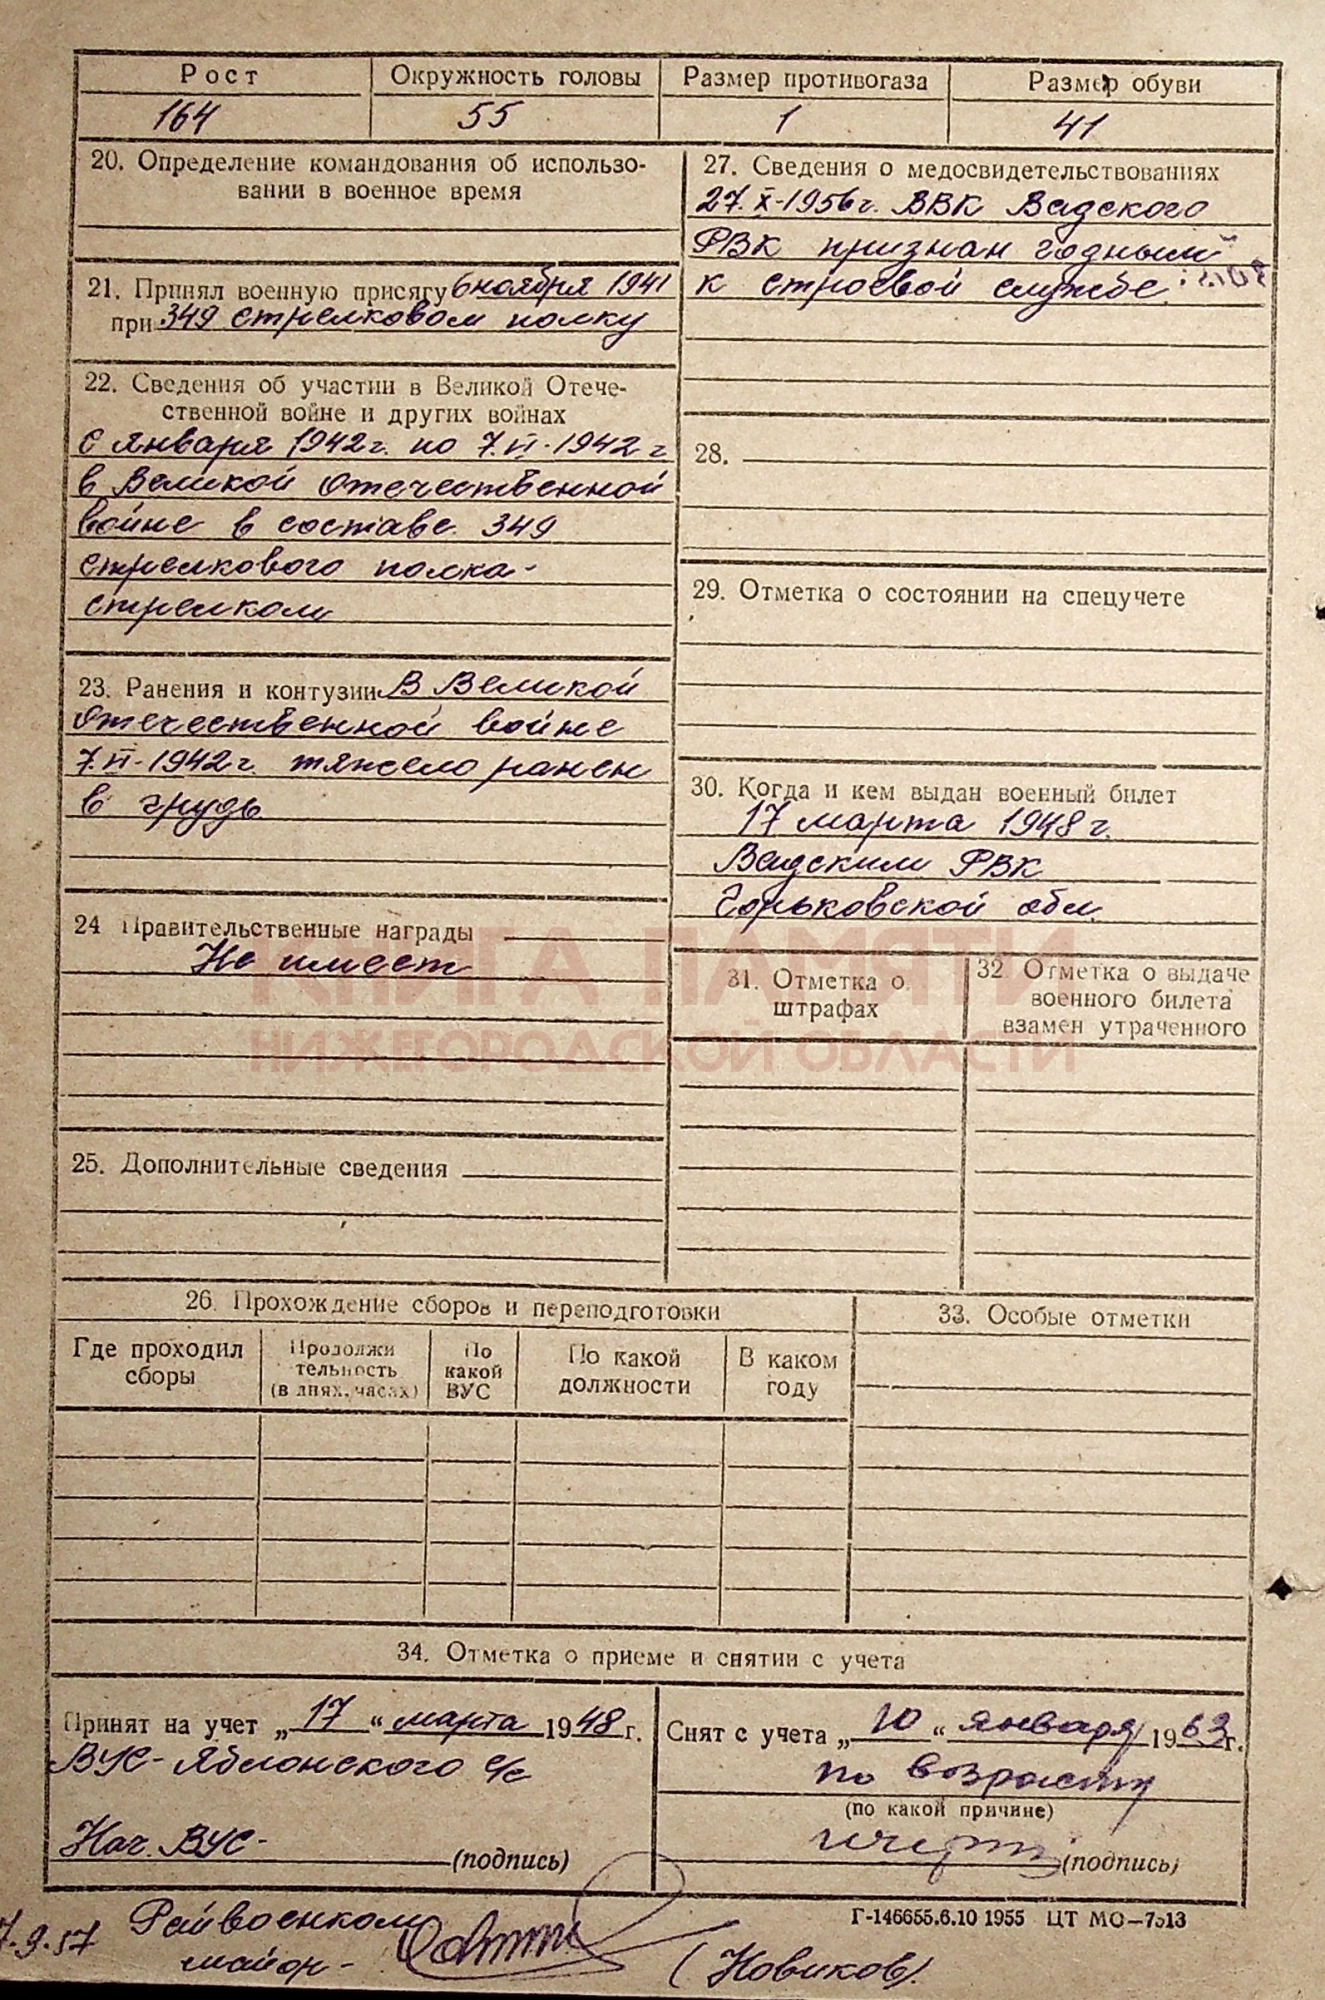 Рост Окружность головы Размер противогаза Размер обуви
164 55 1 41
20. Определение командования об использо-
вании в военное время
21. Принял военную присягу 6 ноября 1941
при 349 стрелковом полку
22. Сведения об участии в Великой Отече-
ственной войне и других войнах
С января 1942 г. по 7.VI-1942 г
в Великой Отечественной
войне в составе 349
стрелкового полка-
стрелком
23. Ранения и контузии В Великой
Отечественной войне
7.VI-1942 г. тяжело ранен
в грудь
24 Правительственные награды
Не имеет
25. Дополнительные сведения
27. Сведения о медосвидетельствованиях
27.X-1956 г. ВВК Вадского
РВК признан годным
к строевой службе
28.
29. Отметка о состоянии на спецучете
30. Когда и кем выдан военный билет
17 марта 1948 г.
Вадским РВК
Горьковской обл.
31. Отметка о
штрафах
32. Отметка о выдаче
военного билета
взамен утраченного
КНИГА ПАМЯТИ
НИЖЕГОРОДСКОЙ ОБЛАСТИ
26. Прохождение сборов и переподготовки
Где проходил
сборы
Продолжи
тельность
(в днях, часах)
По
какой
ВУС
По какой
должности
В каком
году
33. Особые отметки
34. Отметка о приеме и снятии с учета
Принят на учет „17“ марта 1948 г.
ВУС-Яблонского с/с
Нач. ВУС-
(подпись)
Снят с учета „10“ января 1963 г.
по возрасту
(по какой причине)
(подпись)
Г-146655.6.10 1955 ЦТ МО-7513
7.9.57 Райвоенком
майор- (Новиков).